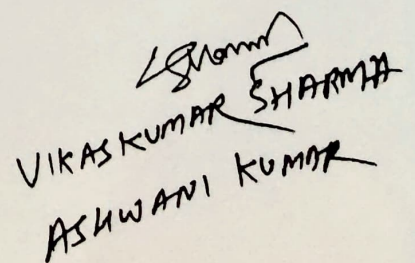 VIKASKUMAR SHARMA
ASHWANI KUMAR